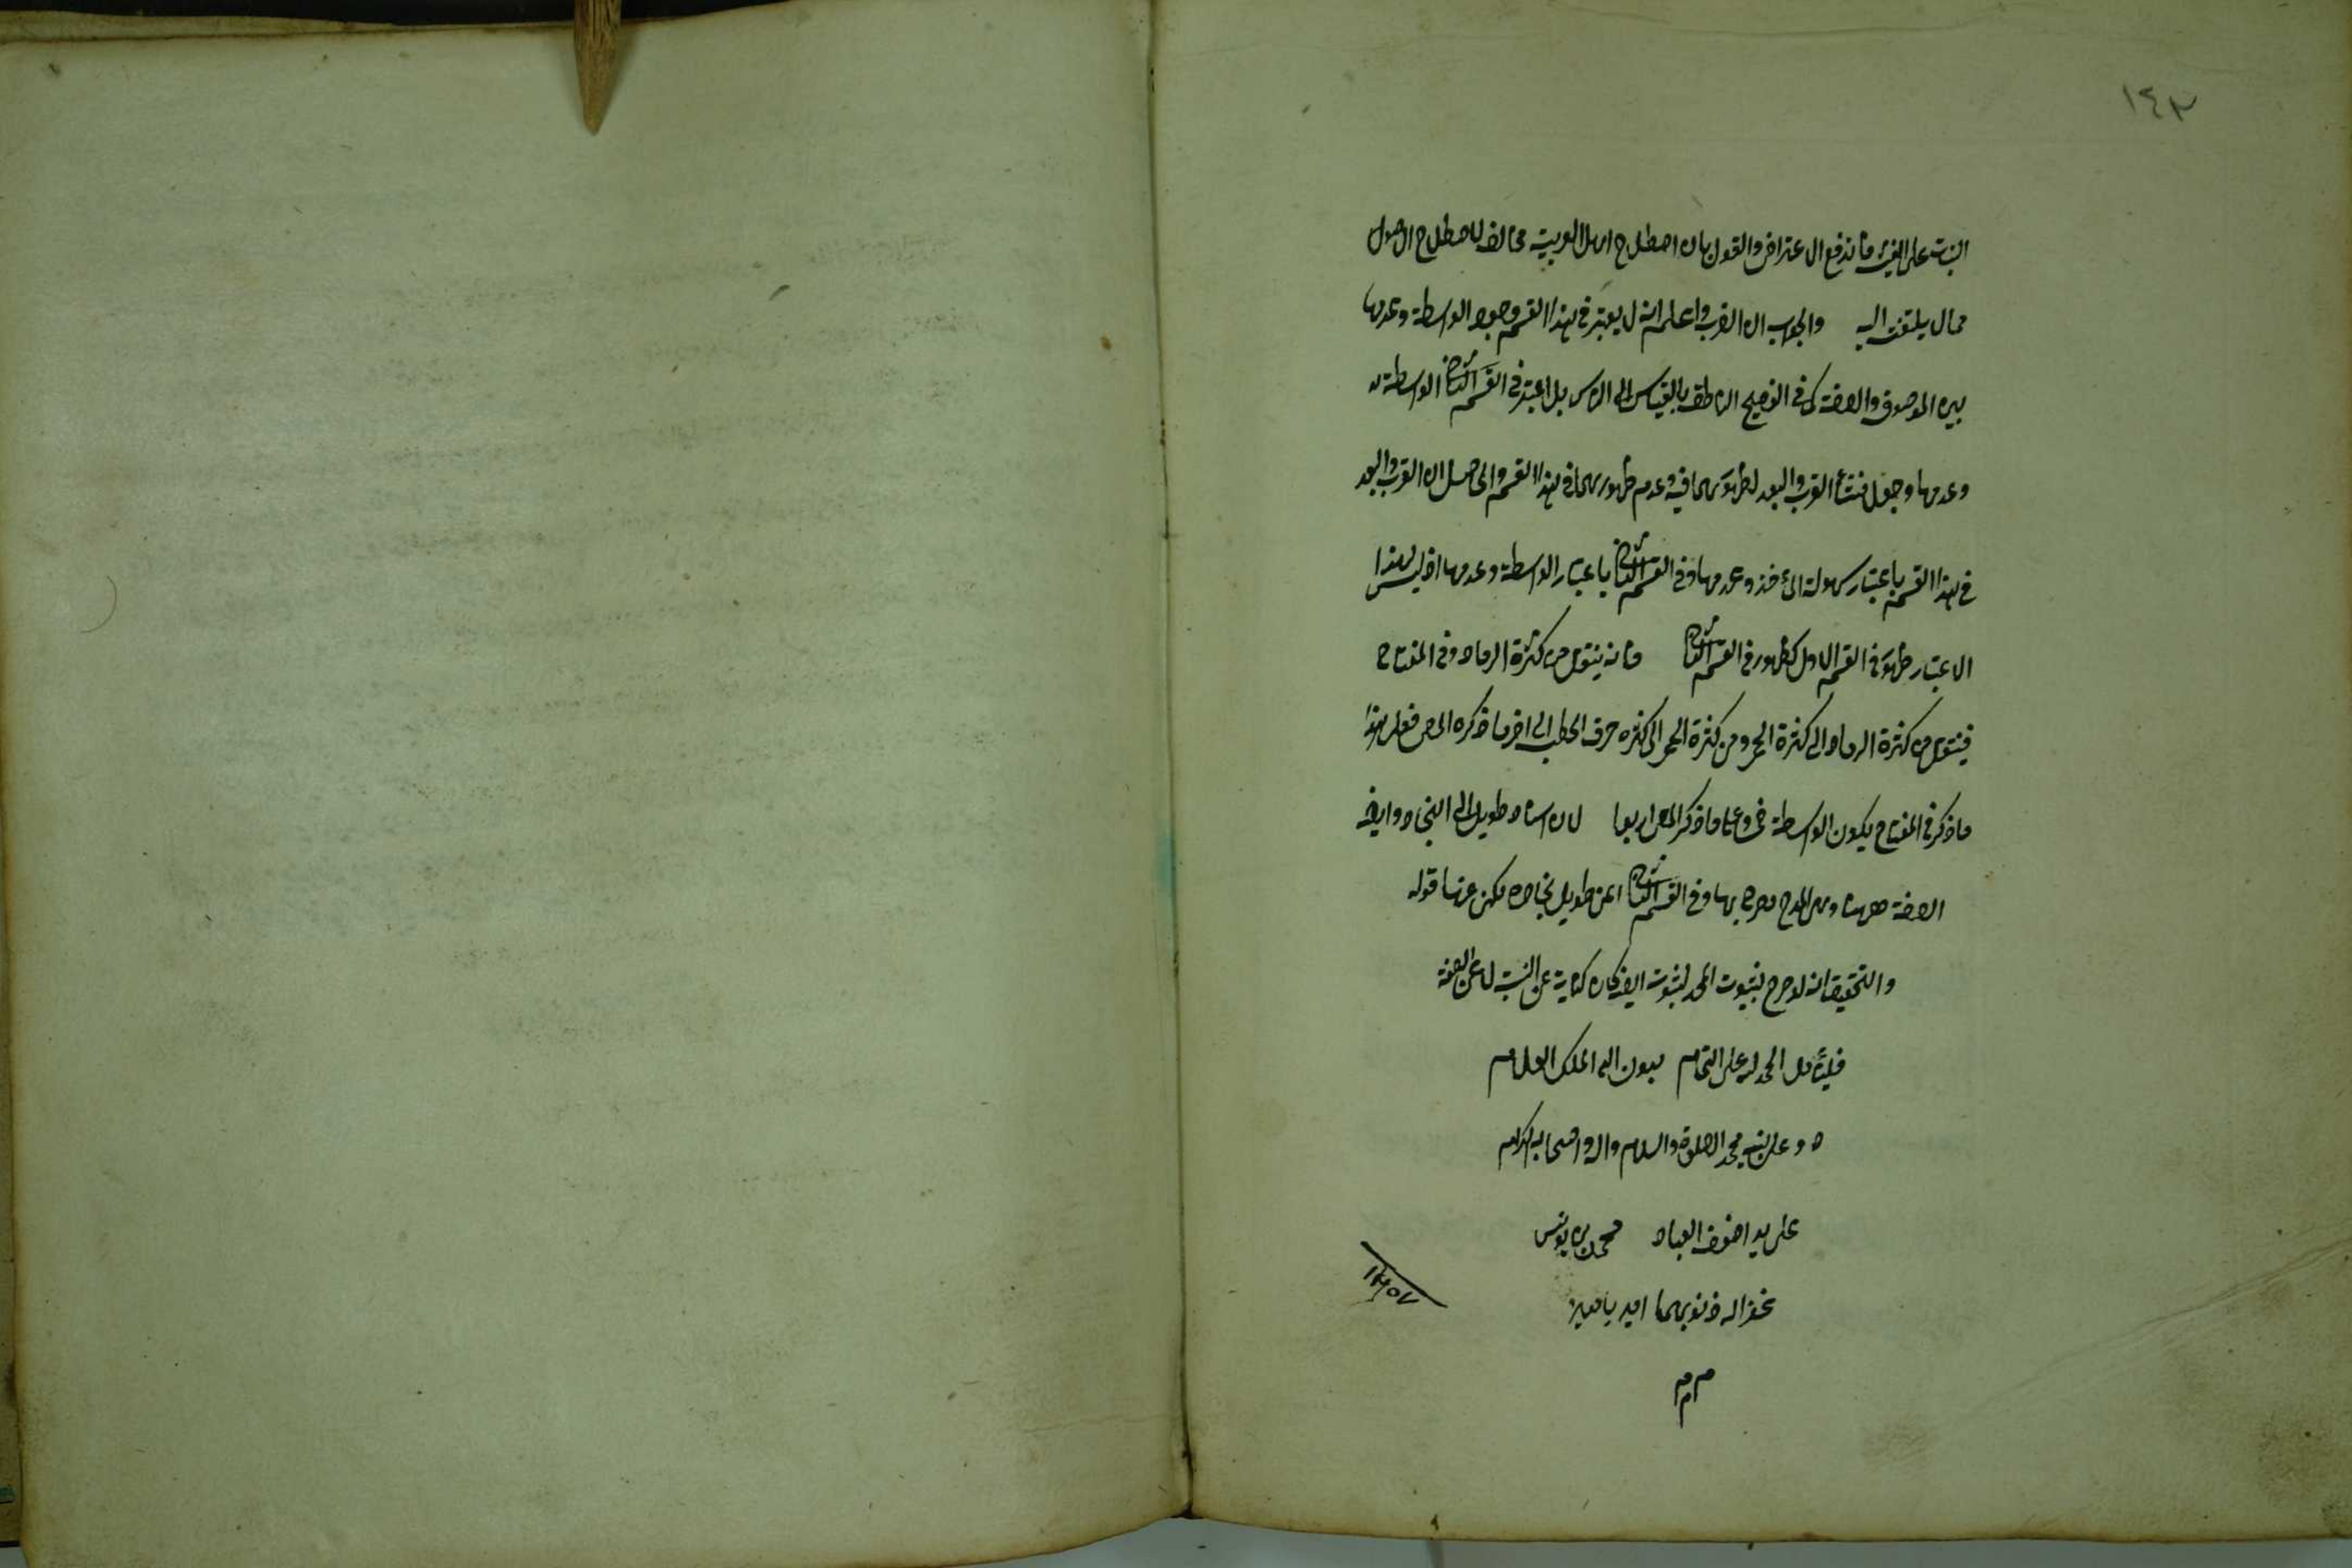 ١٤٣
على الغير فاندفع الاعتراض والقول بان اصطلاح اهل العربية مخالف لاصطلاح الاصول
مما لا يلتفت اليه والجواب ان القرب واعلم انه لا يعتبر في هذا القسم وجود الواسطة وعدمها
بين الموصوف والصفة كما في الناطق بالقياس الى بل اعتبر في القسم الثاني الواسطة
وعدمها وجعل منشأ القرب والبعد لظهورهما فيه وعدم ظهورهما في هذا القسم والحاصل ان القرب والبعد
في هذا القسم باعتبار سهولة المأخذ وعدمها وفي القسم الثاني باعتبار الواسطة وعدمها اذ ليس لهذا
الاعتبار ظهور في القسم الاول كظهوره في القسم الثاني فانه ينتقل من كثرة الرماد وفي المفتاح
فينتقل من كثرة الرماد الى كثرة الجمر ومن كثرة الجمر الى كثرة حرق الحطب الى اخر ما ذكره المص فعلى هذا
ما ذكر في المفتاح يكون الواسطة خمسا وعلى ما ذكر المص اربعا لان اسناد طويل الى النجاد وايضا
الصفة ههنا وهي المدح مصرح بها وفي القسم الثاني اعنى طويل نجاده مكنى عنها قوله
والتحقيق انه لو صرح بثبوت المجد لثبوت ايضا كان كناية عن النسبة لا عن الصفة
فليتأمل الحمد لله على التمام بعون الله الملك العلام
وعلى نبيه محمد الصلوة والسلام واله واصحابه الكرام
على يد اضعف العباد محمد بن يونس
غفر الله ذنوبهما امين يا معين
م م م